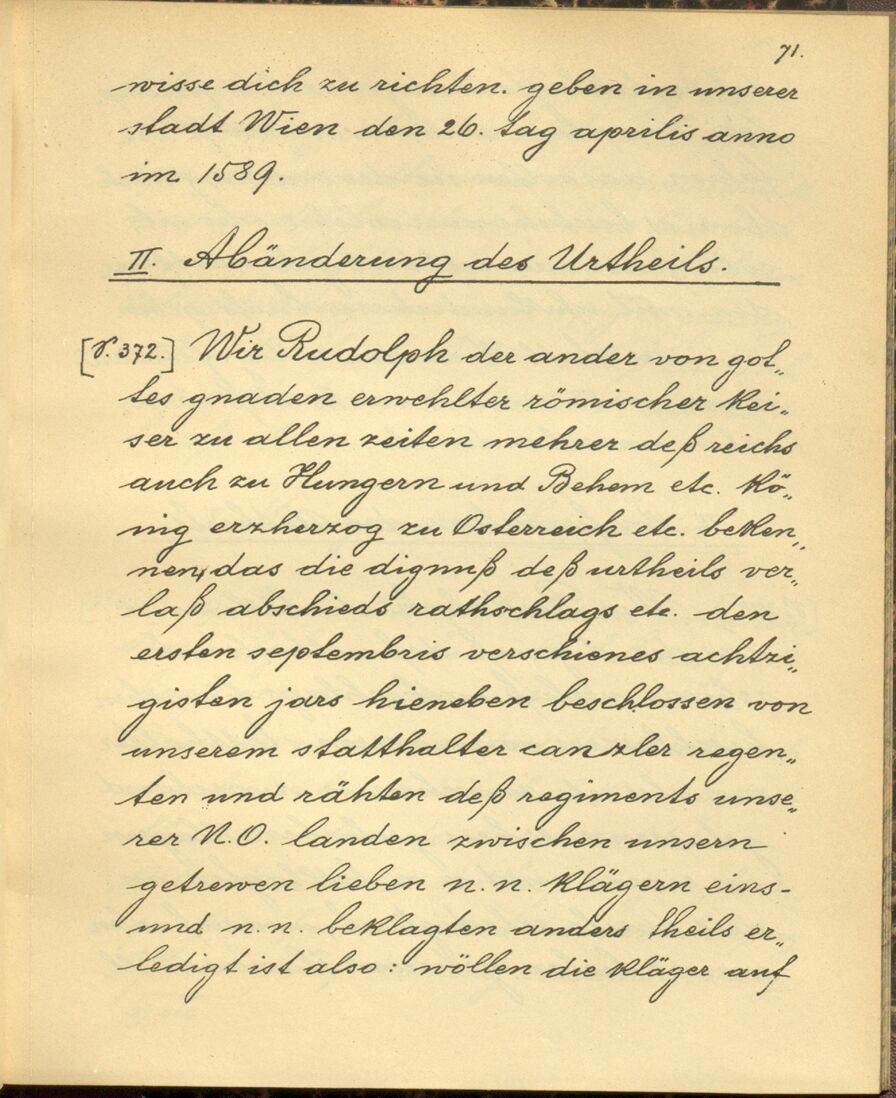 71.
wisse dich zu richten. geben in unserer
stadt Wien den 26. tag aprilis anno
im 1589.
II. Abänderung des Urtheils.
[V. 372.] Wir Rudolph der ander von got„
tes gnaden erwehlter römischer kei„
ser zu allen zeiten mehrer deß reichs
auch zu Hungern und Behem etc. kö„
nig erzherzog zu Osterreich etc. beken„
nen, das die dignuß deß urtheils ver„
laß abschieds rathschlags etc. den
ersten septembris verschienes achtzi„
gisten jars hieneben beschlossen von
unserem statthalter canzler regen„
ten und rähten deß regiments unse„
rer N.O. landen zwischen unsern
getrewen lieben n.n. klägern eins-
und n.n. beklagten anders theils er„
ledigt ist also: wöllen die kläger auf